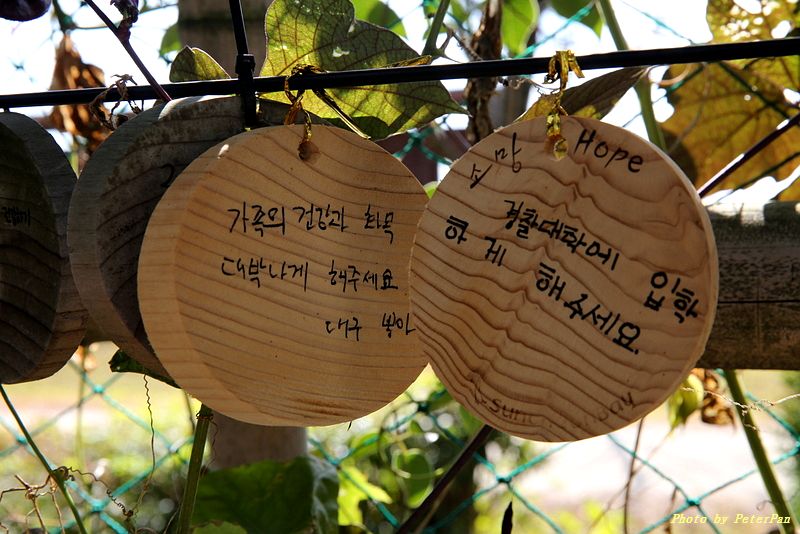 가족의 건강과 화목
대박나게 해주세요
대구 봉아
소망 Hope
경찰대학에 입학
하게 해주세요.
Photo by PeterPan